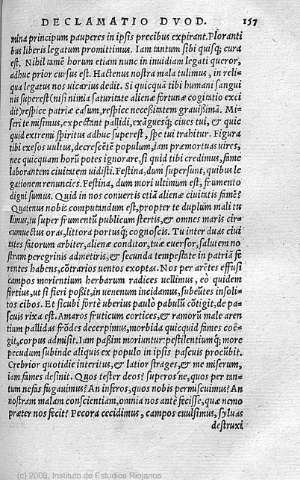 DECLAMATIO DVOD. 157
mina principum pauperes in ipsis precibus expirant. Ploranti
bus liberis legatum promittimus. Iam tantum sibi quisq; cura
est. Nihil tamē horum etiam nunc in inuidiam legati queror,
adhuc prior cursus est. Hactenus nostra mala tulimus, in reli
qua legatus nos uicarios dedit. Si quicquā tibi humani sangui
nis superest (nisi nimia saturitate alienæ fortunæ cogitatio exci
dit) respice patriæ casum, respice necessitatem grauissimā. Mi
seri te misimus, expectant pallidi, exāguesq; ciues tui, & quic
quid extremi spiritus adhuc superest, spe tui trahitur. Figura
tibi exesos uultus, decrescētē populum, iam præmortuas uires,
nec quicquam horū potes ignorare, si quid tibi credimus, fame
laborantem ciuitatem uidisti. Festina, dum supersunt, quibus le
gationem renuncies. Festina, dum mori ultimum est, frumento
digni sumus. Quid in nos conuerris etiā alienæ ciuitatis famē?
Quatenus nobis computandum est, propter te duplum mali to
limur, tu super frumentū publicum stertis, & omnes maris cir
cumuectus oras, littora portusq; cognoscis. Tu inter duas ciui
tates fatorum arbiter, alienæ conditor, tuæ euersor, salutem no
stram peregrinis admetiris, & secunda tempestate in patriā fe
rentes habens, cōtrarios uentos exoptas. Nos per arētes effusi
campos morientium herbarum radices uellimus, eo quidem
fortius, ut si fieri possit, in uenenum incidamus, subeūtes insoli
tos cibos. Et sicubi forte uberius paulo pabulū cōtigit, de pa
scuis rixa est. Amaros fruticum cortices, & ramorū male aren
tium pallidas frōdes decerpimus, morbida quicquid fames coë
git, corpus admisit. Iam passim moriuntur: pestilentiumq; more
pecudum subinde aliquis ex populo in ipsis pascuis procūbit.
Crebrior quotidie interitus, & latior strages, & me miserum,
iam fames desinit. Quos tester deos? superos ne, quos per tan
tum nefas fugauimus? An inferos, quos nobis permiscuimus? An
nostram malam conscientiam, omnia nos ante fecisse, quæ nemo
præter nos fecit? Pecora cecidimus, campos euulsimus, syluas
destruxi
(c) 2008, Instituto de Estudios Riojanos